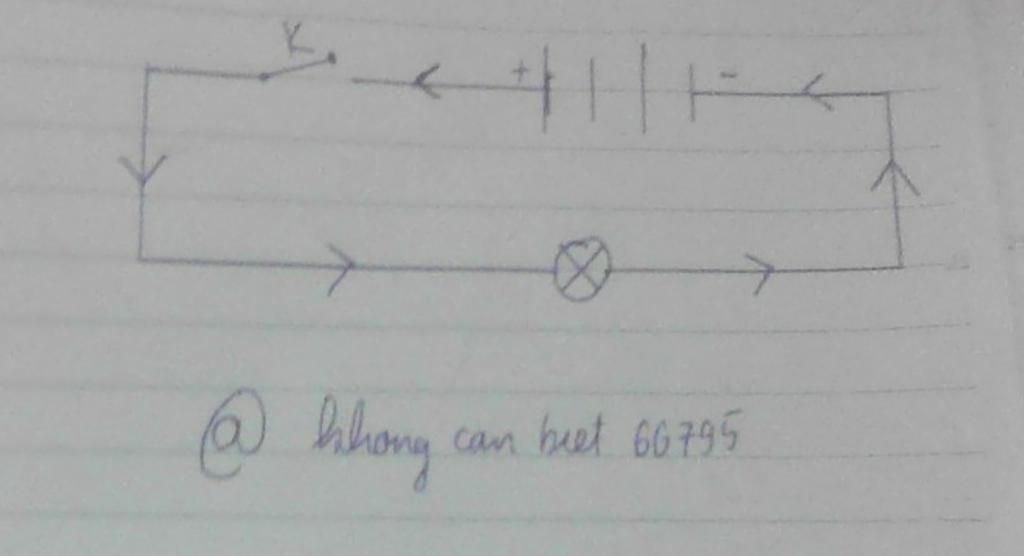 K
+ -
@ khong can biet 66795